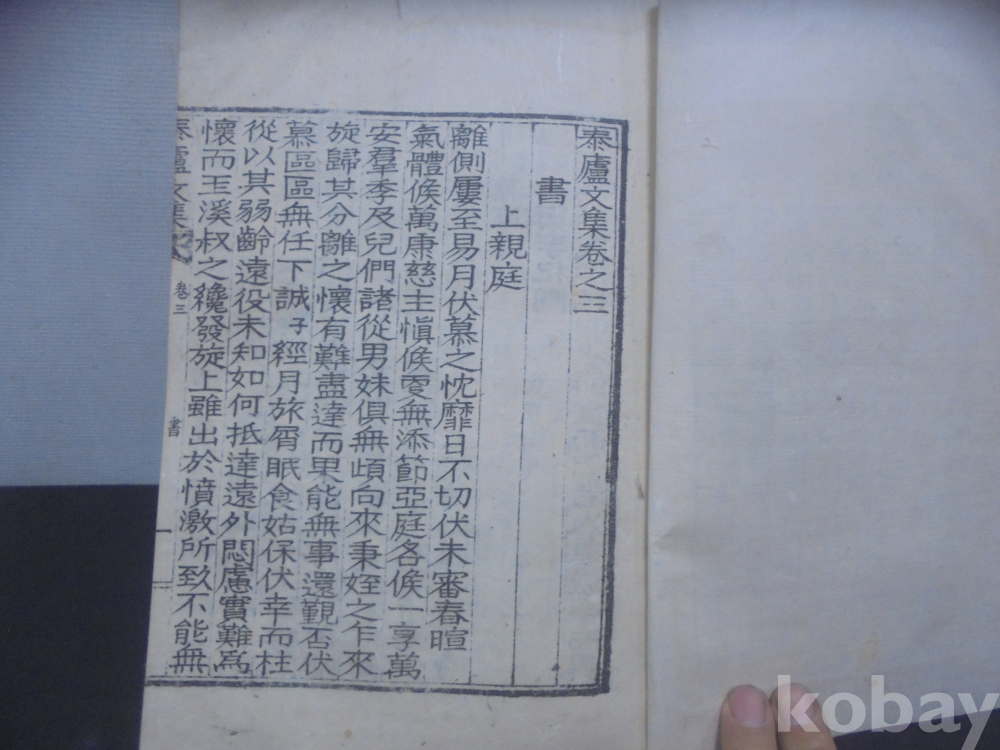 泰廬文集卷之三
書
上親庭
離側屢至易月伏慕之忱靡日不切伏未審春暄
氣體候萬康慈主愼候更無添節亞庭各候一享萬
安羣季及兒們諸從男妹俱無頉向來秉姪之乍來
旋歸其分離之懷有難盡達而果能無事還覲否伏
慕區區無任下誠子經月旅屑眠食姑保伏幸而柱
從以其弱齡遠役未知如何抵達遠外悶慮實難爲
懷而玉溪叔之纔發旋上雖出於憤激所致不能無
泰廬文集 卷三 書 一
kobay